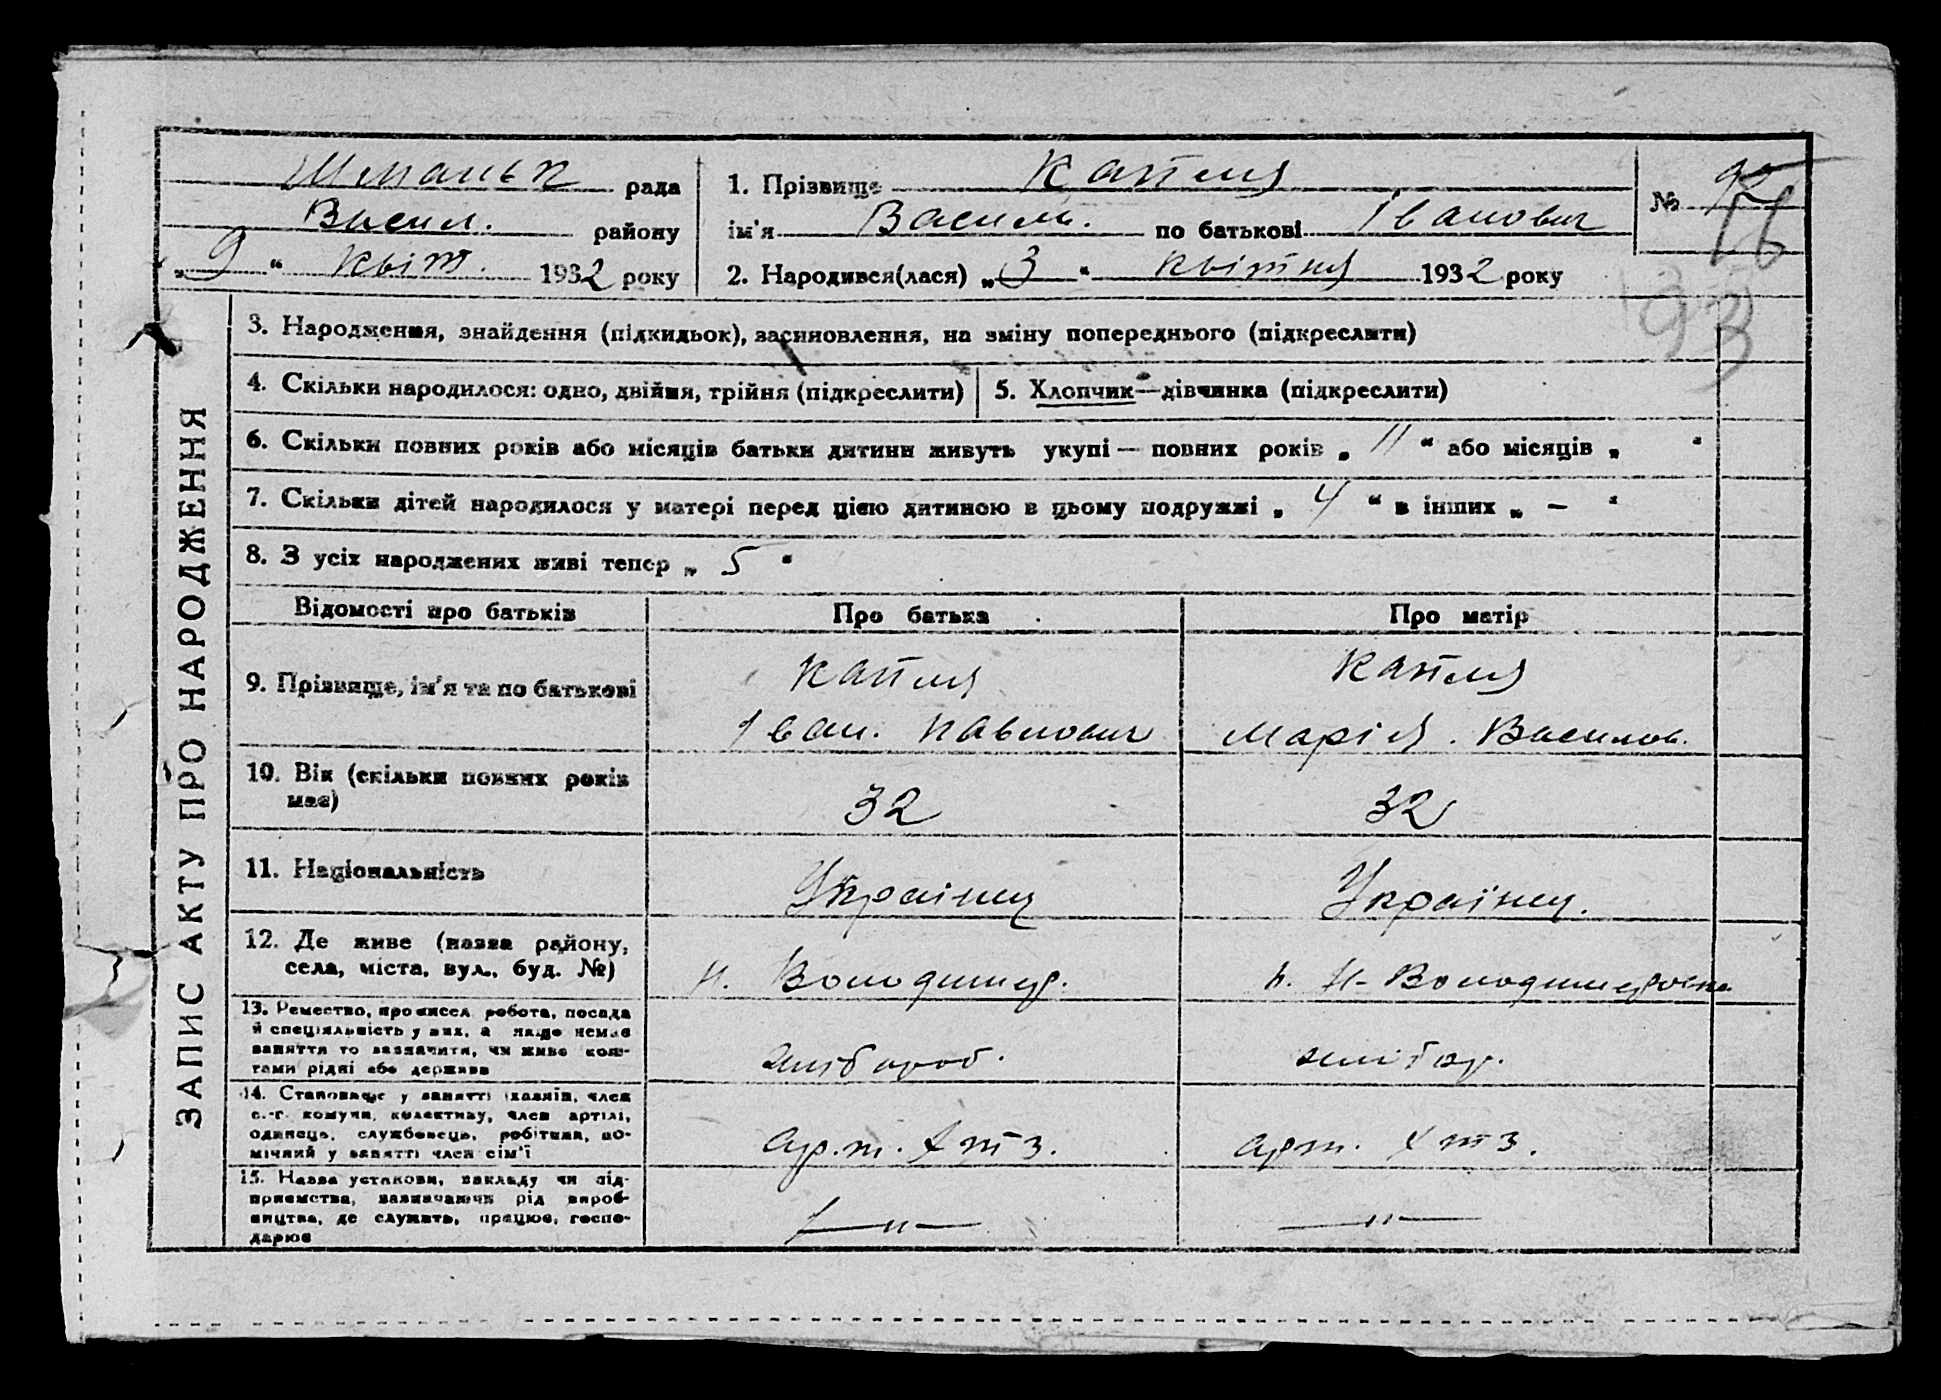 ЗАПИС АКТУ ПРО НАРОДЖЕННЯ
рада
Васил. району
„9“ Квіт. 1932 року
1. Прізвище Капля
ім'я Василь. по батькові Іванович
2. Народився(лася) „3“ Квітня 1932 року
№
93
3. Народження, знайдення (підкидьок), засиновлення, на зміну попереднього (підкреслити)
4. Скільки народилося: одно, двійня, трійня (підкреслити)
5. Хлопчик—дівчинка (підкреслити)
6. Скільки повних років або місяців батьки дитини живуть укупі — повних років „11“ або місяців „ “
7. Скільки дітей народилося у матері перед цією дитиною в цьому подружжі „4“ в інших „—“
8. З усіх народжених живі тепер „5“
Відомості про батьків Про батька Про матір
9. Прізвище, ім'я та по батькові
Капля
Іван. Павлович
Капля
Марія. Василов.
10. Вік (скільки повних років
має)
32
32
11. Національність
Українец
Українец.
12. Де живе (назва району,
села, міста, вул., буд. №)
Н. Володимир.
Н-Володимеровка
13. Ремество, промисел, робота, посада
й спеціяльність у них, а якщо немає
заняття то зазначити, чи живе кош-
тами рідні або держави
хлібороб.
хлібор.
14. Становище у занятті (хазяїн, член
с.-г. комуни, колективу, член артілі,
одинець, службовець, робітник, по-
мічний у занятті член сім'ї
арт. ХТЗ.
арт. ХТЗ.
15. Назва установи, закладу чи під-
приємства, зазначаючи рід вироб-
ництва, де служить, працює, госпо-
дарює
—"—
—"—